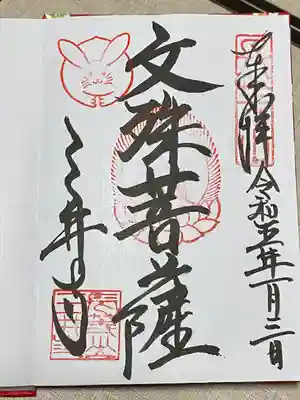 奉拝 令和五年一月三日
文殊菩薩
三井寺